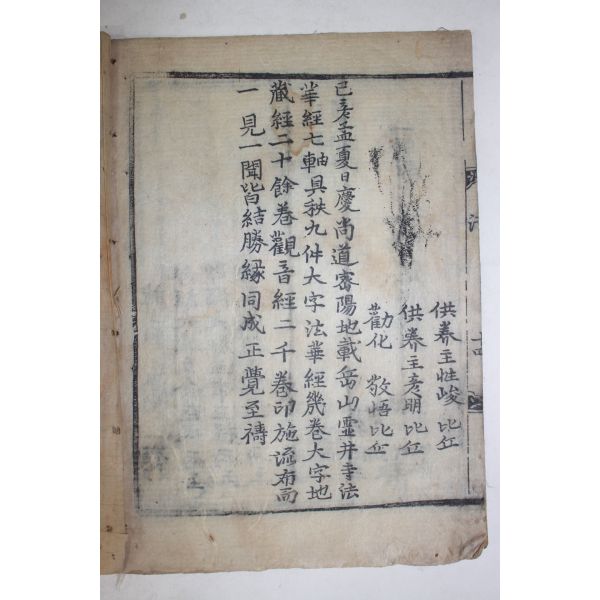 法
供養主性峻 比丘
供養主彦明 比丘
勸化 敬悟比丘
己亥孟夏日慶尚道密陽地載岳山靈井寺法
華經七軸具秩九件大字法華經幾卷大字地
藏經二十餘卷觀音經二千卷印施流布而
一見一聞皆結勝緣同成正覺至禱